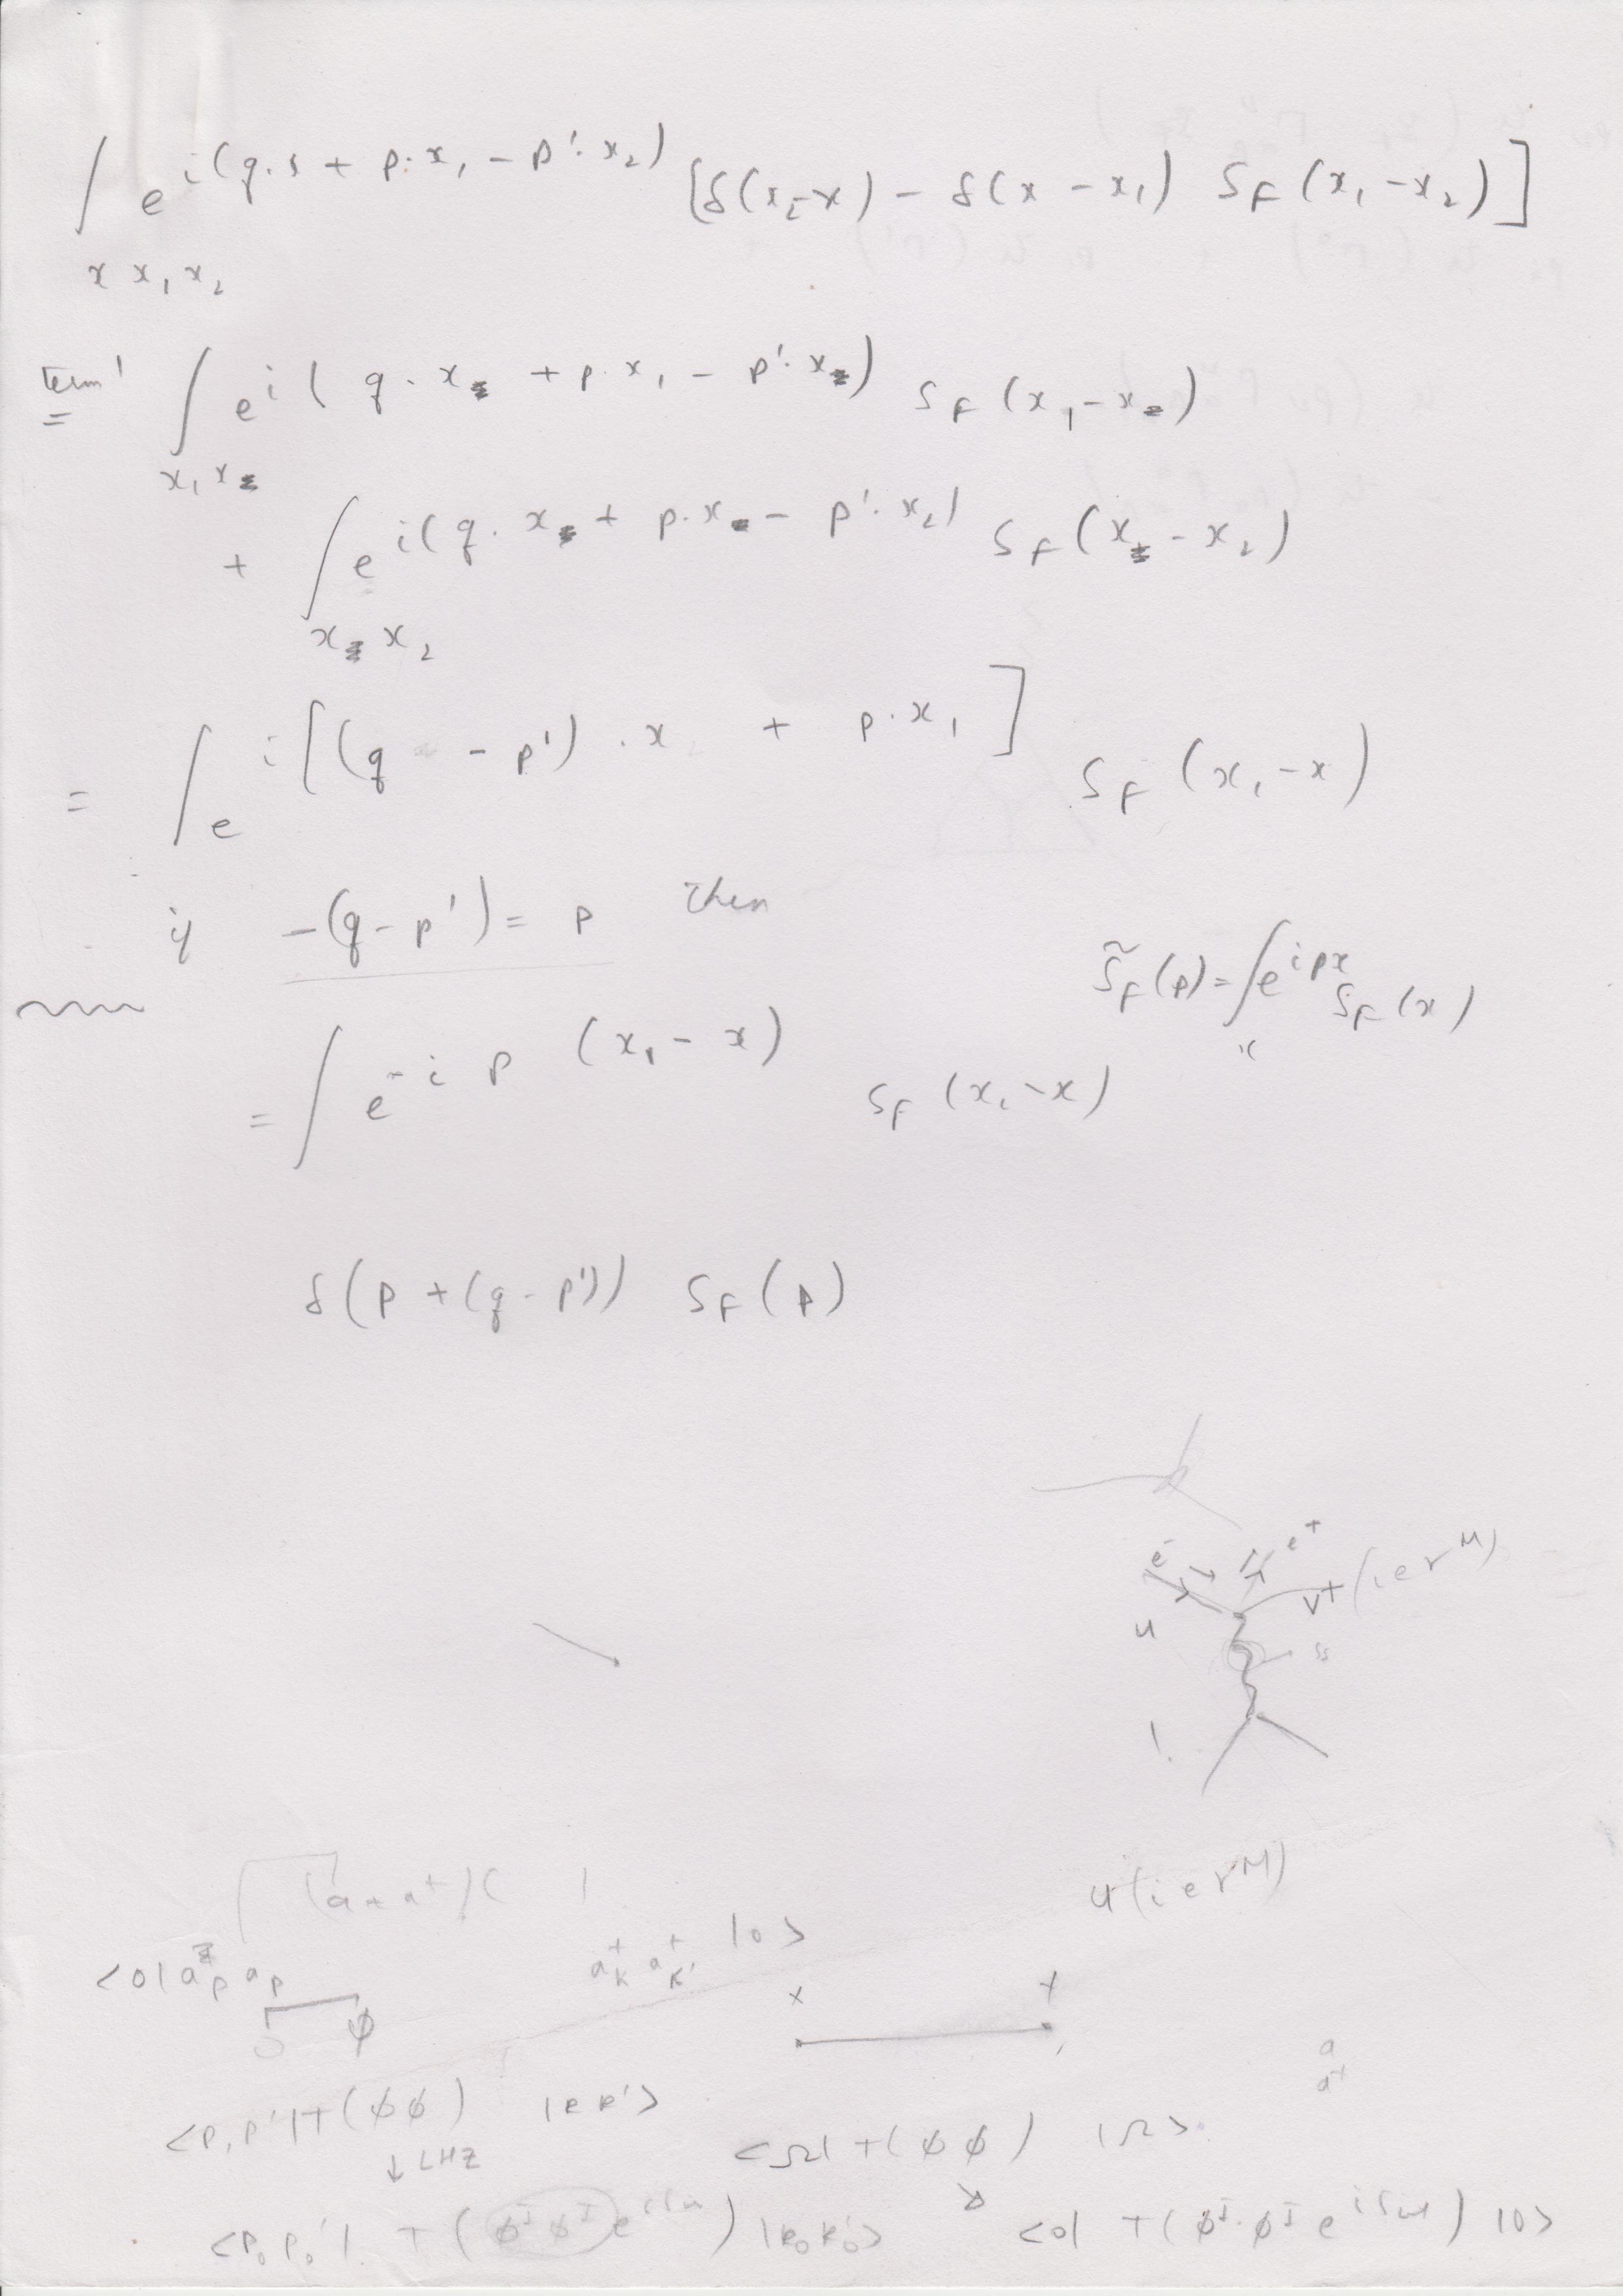 ∫ e^{i(q·x + p·x₁ - p'·x₂)} [δ(x₂-x) - δ(x-x₁) S_F(x₁-x₂)]
x x₁ x₂
term 1 ∫ e^{i(q·x + p·x₁ - p'·x)} S_F(x₁-x)
=
x₁ x
+ ∫ e^{i(q·x + p·x - p'·x₂)} S_F(x-x₂)
x x₂
= ∫ e^{i[(q - p')·x + p·x₁]} S_F(x₁-x)
if -(q-p') = p then
S̃_F(p) = ∫ e^{ipx} S_F(x)
x
= ∫ e^{-ip(x₁-x)} S_F(x₁-x)
δ(p+(q-p')) S_F(p)
e⁻ e⁺
u v+(ieγ^M)
u(ieγ^M)
(a+a⁺)(
<0|a_p a_p a⁺_k a⁺_k' |0>
φ
x y
a
a⁺
<p,p'|T(φφ) |k k'>
↓ LHZ
<Ω|T(φφ) |Ω>
<p₀p₀'| T(φ^I φ^I e^{i∫}) |k₀k₀'>
<0| T(φ^I·φ^I e^{i∫}) |0>